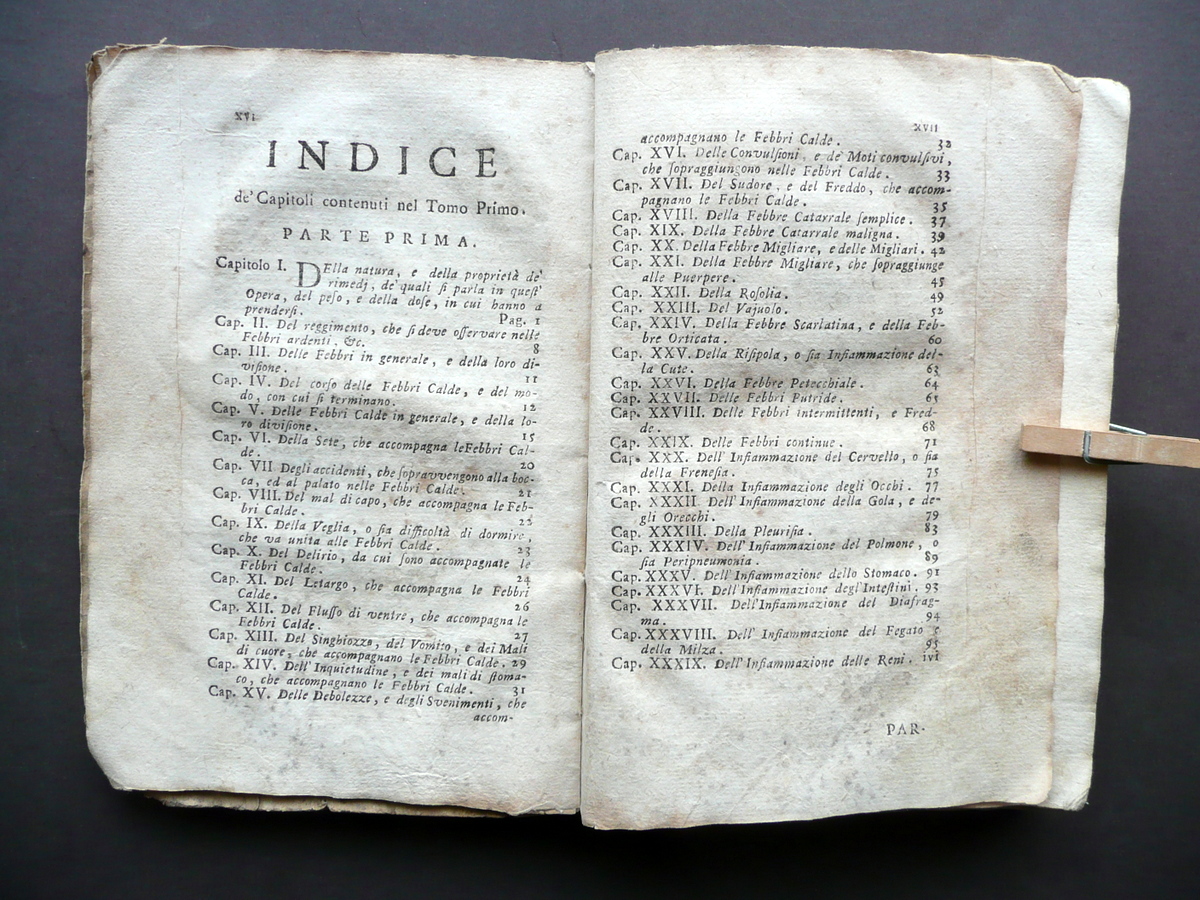 xvi
INDICE
de' Capitoli contenuti nel Tomo Primo.
PARTE PRIMA.
Capitolo I. DElla natura, e della proprietà de'
rimedj, de' quali ſi parla in queſt'
Opera, del peſo, e della doſe, in cui hanno a
prenderſi. Pag. 1
Cap. II. Del reggimento, che ſi deve oſſervare nelle
Febbri ardenti, &c. 8
Cap. III. Delle Febbri in generale, e della loro di-
viſione. 11
Cap. IV. Del corſo delle Febbri Calde, e del mo-
do, con cui ſi terminano. 12
Cap. V. Delle Febbri Calde in generale, e della lo-
ro diviſione. 15
Cap. VI. Della Sete, che accompagna le Febbri Cal-
de. 20
Cap. VII Degli accidenti, che ſopravvengono alla boc-
ca, ed al palato nelle Febbri Calde. 21
Cap. VIII. Del mal di capo, che accompagna le Feb-
bri Calde. 22
Cap. IX. Della Veglia, o ſia difficoltà di dormire,
che va unita alle Febbri Calde. 23
Cap. X. Del Delirio, da cui ſono accompagnate le
Febbri Calde. 24
Cap. XI. Del Letargo, che accompagna le Febbri
Calde. 26
Cap. XII. Del Fluſſo di ventre, che accompagna le
Febbri Calde. 27
Cap. XIII. Del Singhiozzo, del Vomito, e dei Mali
di cuore, che accompagnano le Febbri Calde. 29
Cap. XIV. Dell'Inquietudine, e dei mali di ſtoma-
co, che accompagnano le Febbri Calde. 31
Cap. XV. Delle Debolezze, e degli Svenimenti, che
accom-
xvii
accompagnano le Febbri Calde. 32
Cap. XVI. Delle Convulſioni, e de' Moti convulſivi,
che ſopraggiungono nelle Febbri Calde. 33
Cap. XVII. Del Sudore, e del Freddo, che accom-
pagnano le Febbri Calde. 35
Cap. XVIII. Della Febbre Catarrale ſemplice. 37
Cap. XIX. Della Febbre Catarrale maligna. 39
Cap. XX. Della Febbre Migliare, e delle Migliari. 42
Cap. XXI. Della Febbre Migliare, che ſopraggiunge
alle Puerpere. 45
Cap. XXII. Della Roſolia. 49
Cap. XXIII. Del Vajuolo. 52
Cap. XXIV. Della Febbre Scarlatina, e della Feb-
bre Orticata. 60
Cap. XXV. Della Riſipola, o ſia Infiammazione del-
la Cute. 63
Cap. XXVI. Della Febbre Petecchiale. 64
Cap. XXVII. Delle Febbri Putride. 65
Cap. XXVIII. Delle Febbri intermittenti, e Fred-
de. 68
Cap. XXIX. Delle Febbri continue. 71
Cap. XXX. Dell'Infiammazione del Cervello, o ſia
della Freneſia. 75
Cap. XXXI. Della Infiammazione degli Occhi. 77
Cap. XXXII. Dell'Infiammazione della Gola, e de-
gli Orecchi. 79
Cap. XXXIII. Della Pleuriſia. 83
Cap. XXXIV. Dell'Infiammazione del Polmone, o
ſia Peripneumonia. 89
Cap. XXXV. Dell'Infiammazione dello Stomaco. 91
Cap. XXXVI. Dell'Infiammazione degl'Inteſtini. 93
Cap. XXXVII. Dell'Infiammazione del Diafrag-
ma. 94
Cap. XXXVIII. Dell'Infiammazione del Fegato e
della Milza. 95
Cap. XXXIX. Dell'Infiammazione delle Reni. ivi
PAR-